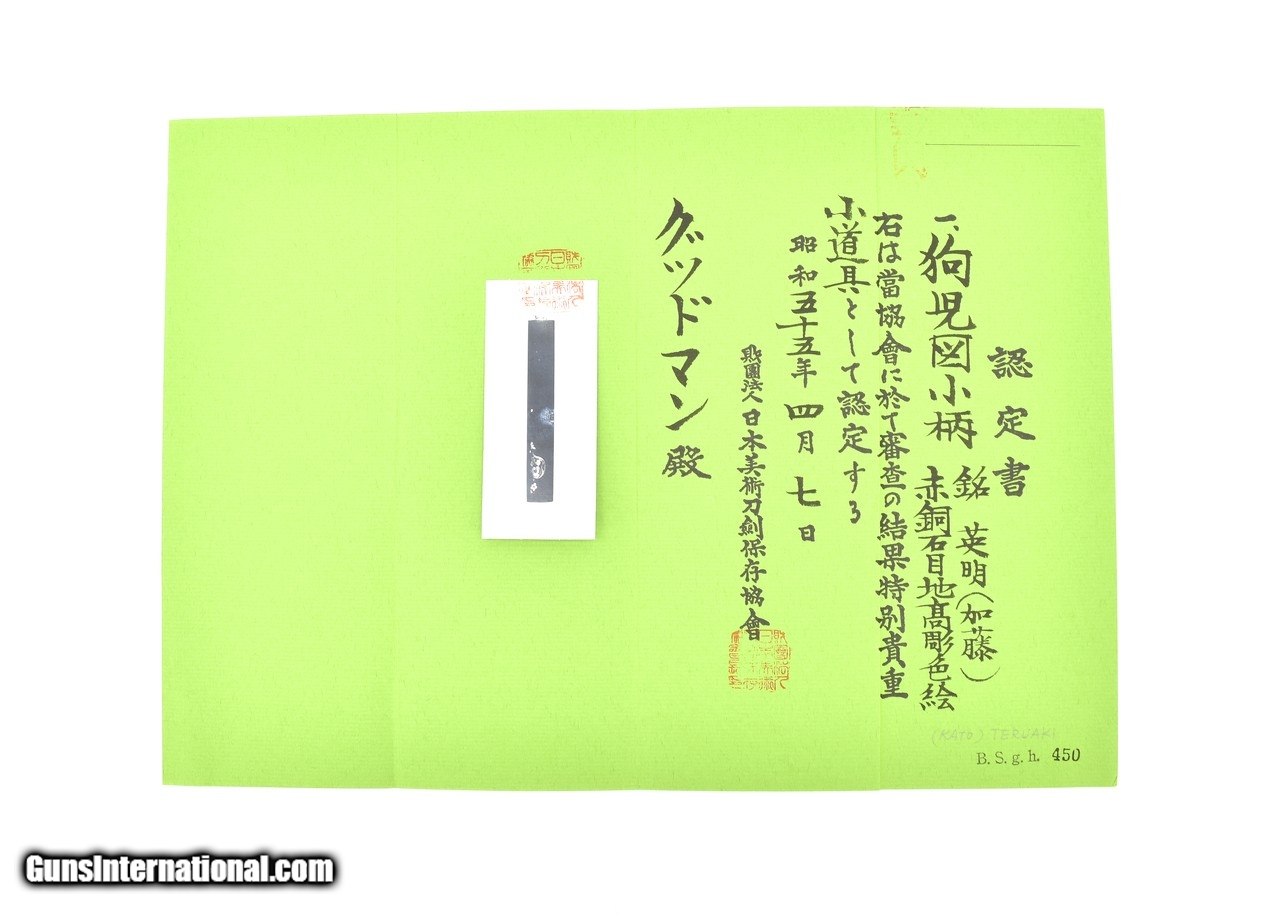 認定書
一、狗児図小柄
銘 英明(加藤)
赤銅石目地高彫色絵
右は當協會に於て審査の結果特別貴重
小道具として認定する
昭和五十五年四月七日
財團法人日本美術刀劍保存協會
グッドマン殿
(KATO) TERUAKI
B. S. g. h. 450
GunsInternational.com